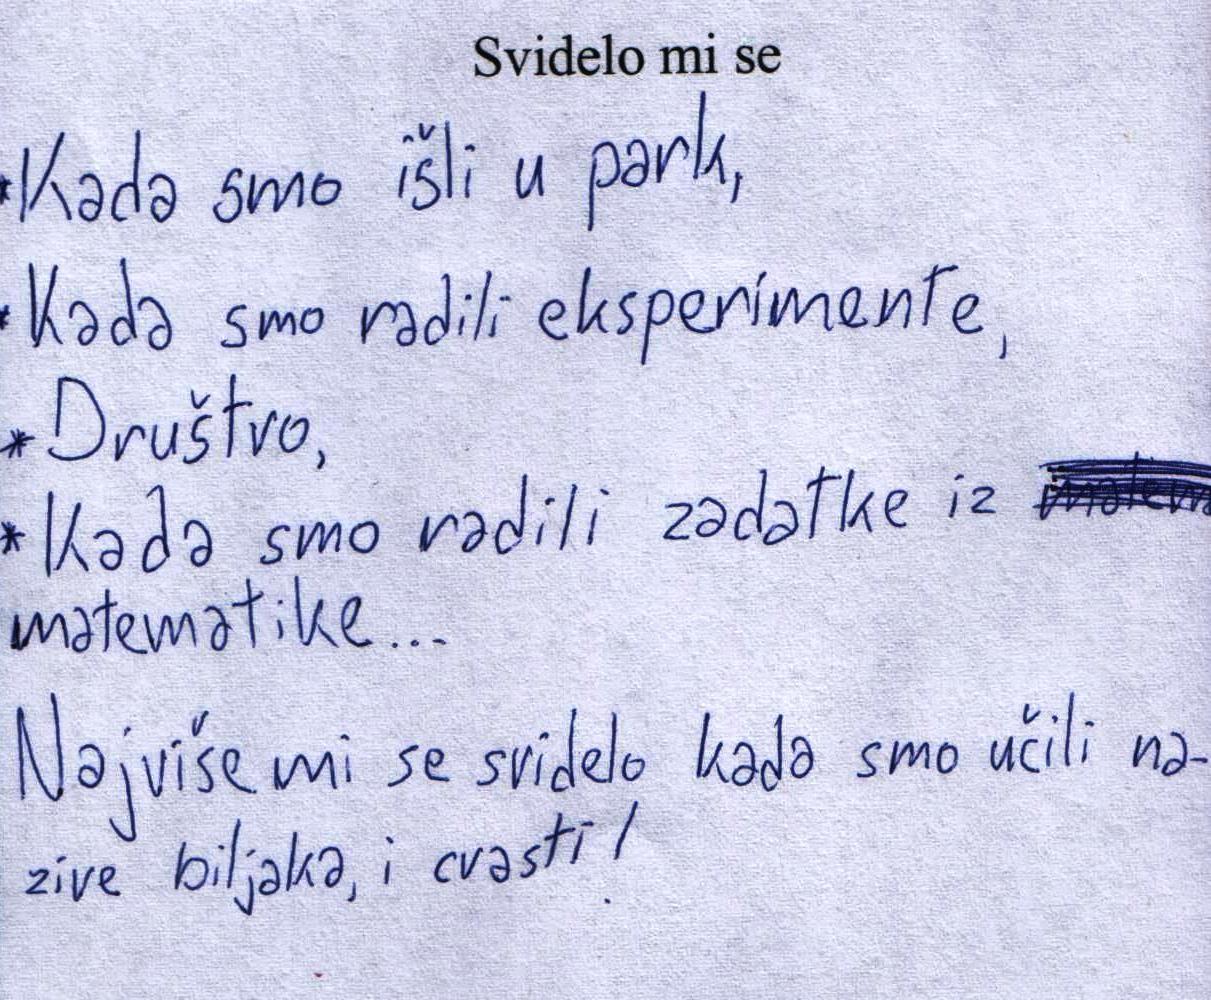 Svidelo mi se
*Kada smo išli u park,
*Kada smo radili eksperimente,
*Društvo,
*Kada smo radili zadatke iz
matematike...
Najviše mi se svidelo kada smo učili na-
zive biljaka, i cvasti!